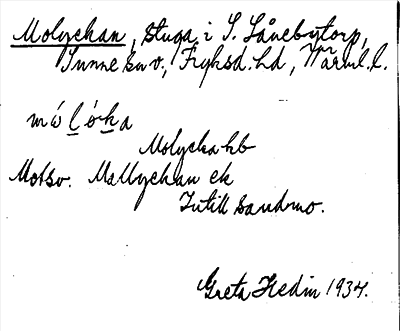 Molyckan, stuga i S. Lånebytorp,
Sunne sn v., Fryksd. hd, Värml. l.
mólóka
Molycka hb
Motsv. Mallyckan ek
Intill sandmo.
Greta Hedin 1934.